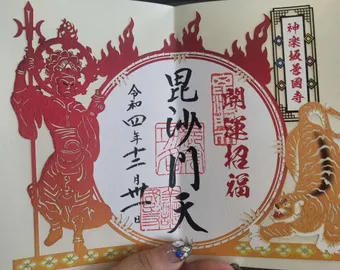 神楽坂善國寺
開運招福
毘沙門天
令和四年十二月卅一日